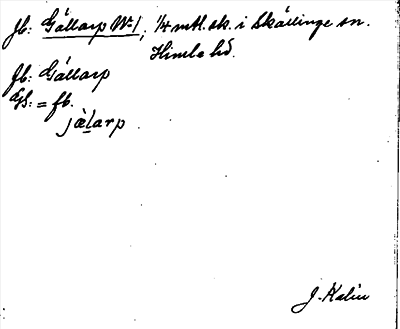 fb: Gällarp № 1, 1/4 mtl. sk. i Skällinge sn.
Himle hd.
fb: Gällarp
Gs: = fb.
jælarp
J. Kalin